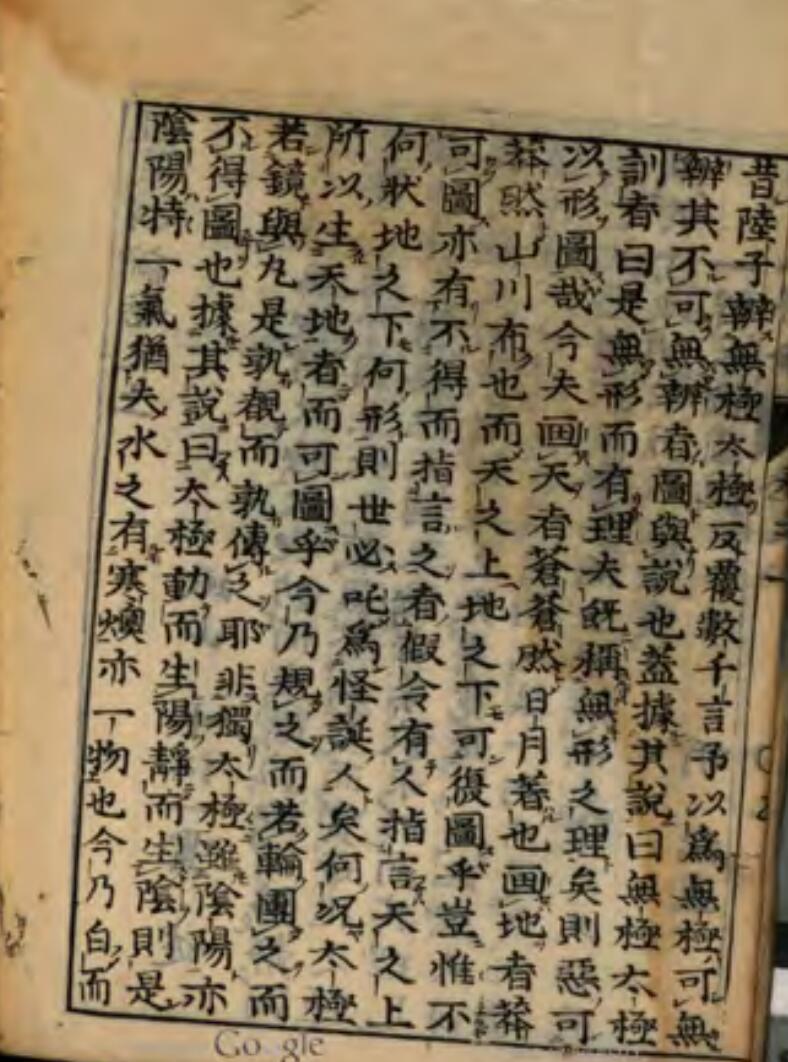 昔陸子辯無極太極反覆數千言予以爲無極可無
辯其不可無辯者圖與說也蓋據其說曰無極太極
訓者曰是無形而有理夫既稱無形之理矣則惡可
以形圖哉今夫画天者蒼蒼然日月著也画地者莽
莽然山川布也而天之上地之下可復圖乎豈惟不
可圖亦有不得而指言之者假令有人指言天之上
何狀地之下何形則世必叱爲怪誕人矣何況太極
所以生天地者而可圖乎今乃規之而若輪團之而
若鏡與丸是孰覩而孰傳之耶非獨太極雖陰陽亦
不得圖也據其說曰太極動而生陽靜而生陰則是
陰陽特一氣猶夫水之有寒燠亦一物也今乃白而
Google